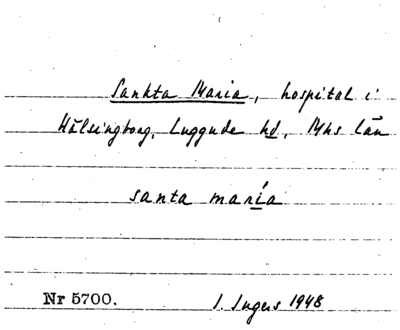 Sankta Maria, hospital i
Hälsingborg, Luggude hd, Mhs län
santa marìa
Nr 5700.
I. Ingers 1948